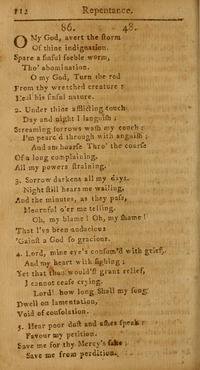 112 Repentance.
86. 48.
O My God, avert the storm
Of thine indignation.
Spare a sinful feeble worm,
Tho' abomination.
O my God, Turn the rod
From thy wretched creature:
Heal his sinful nature.
2. Under thine afflicting touch
Day and night I languish;
Streaming sorrows wash my couch:
I'm pearc'd through with anguish;
And am hoarse Thro' the course
Of a long complaining,
All my powers straining.
3. Sorrow darkens all my days,
Night still hears me wailing,
And the minutes, as they pass,
Mournful o'er me telling.
Oh, my blame! Oh, my shame!
That I've been audacious
'Gainst a God so gracious.
4. Lord, mine eye's consum'd with grief,
And my heart with sighing;
Yet that thou would'st grant relief,
I cannot cease crying.
Lord! how long Shall my song
Dwell on lamentation,
Void of consolation.
5. Hear poor dust and ashes speak:
Favour my petition.
Save me for thy Mercy's sake;
Save me from perdition.